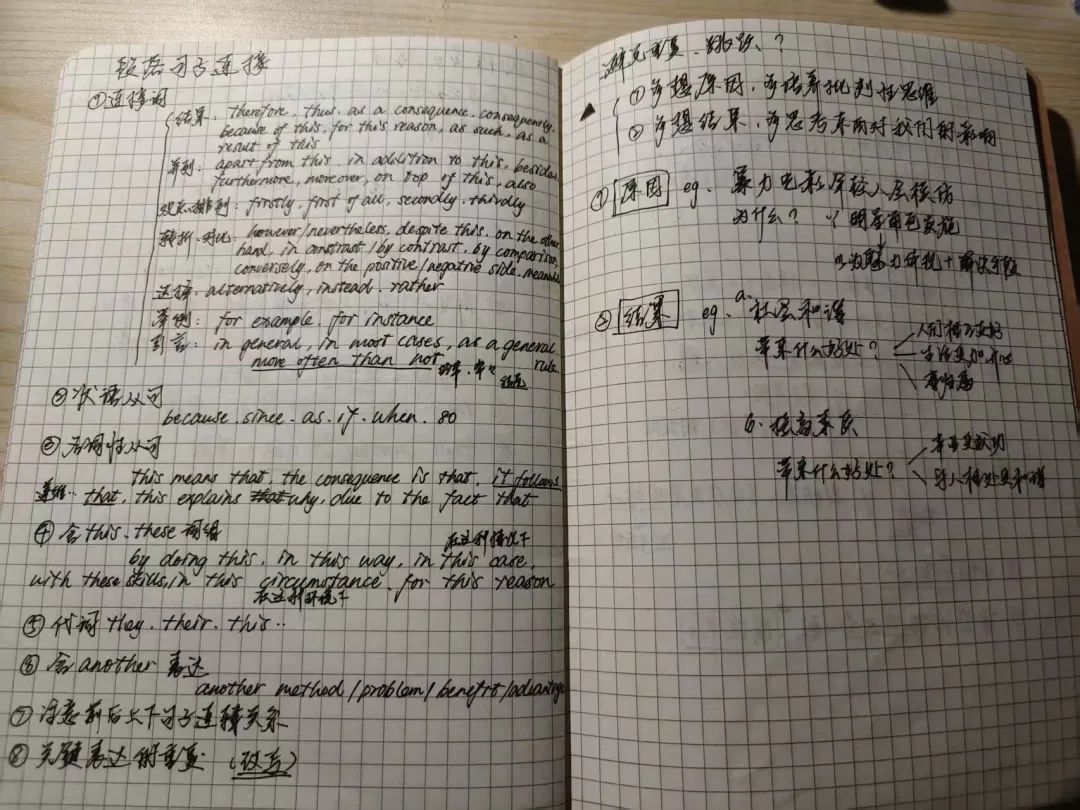 段落句子连接
①连接词
结果：therefore, thus, as a consequence, consequently,
because of this, for this reason, as such, as a
result of this
并列：apart from this, in addition to this, besides,
furthermore, moreover, on top of this, also
观点排列：firstly, first of all, secondly, thirdly
转折、对比：however/nevertheless, despite this, on the other
hand, in constrast/by contrast, by comparison,
conversely, on the positive/negative side, meanwhile
选择：alternatively, instead, rather
举例：for example, for instance
引言：in general, in most cases, as a general rule,
more often than not
②状语从句
because. since. as. if. when. so
③名词性从句
this means that, the consequence is that, it follows
that, this explains why, due to the fact that
④含this、these词组
在这种情况下
by doing this, in this way, in this case,
with these skills, in this circumstance, for this reason
在这种环境下
⑤代词 they. their. this..
⑥含another 表达
another method/problem/benefit/advantage
⑦注意前后上下句子连接关系
⑧关键表达的重复 (改写)
避免重复、跳跃、？
①多想原因，多培养批判性思维
②多想结果，多思考东西对我们的影响
①原因 eg. 暴力电影年轻人会模仿
为什么？ 明星角色实施
②结果 eg. a. 社会和谐
带来什么好处？ 人们相互友好
生活更加
b. 提高素质
带来什么好处？ 事业更成功
与人相处更和谐